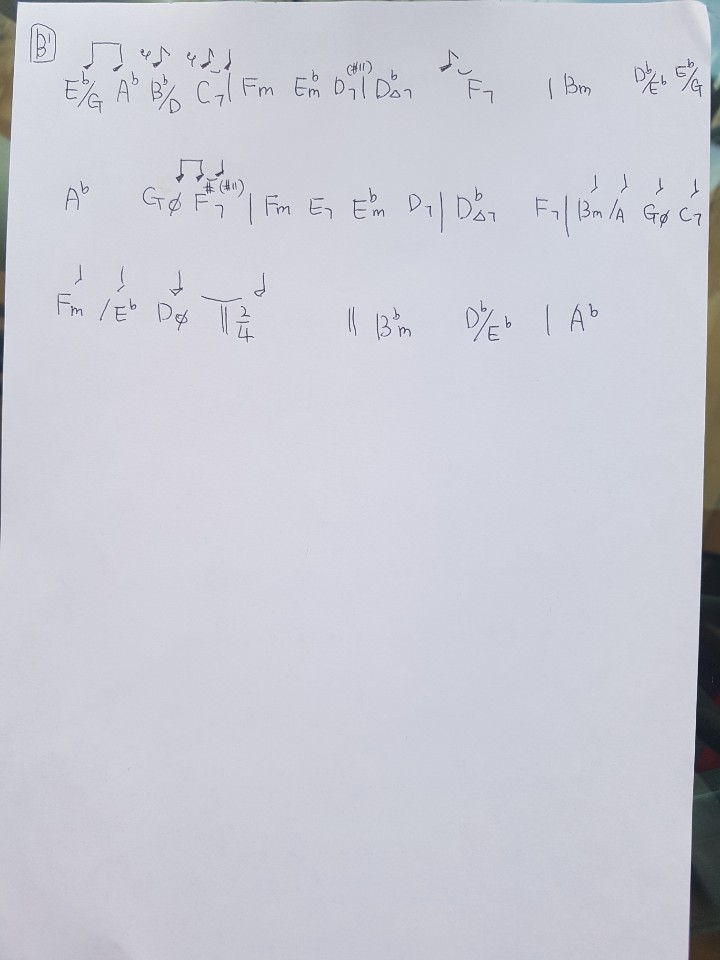 B'
E♭/G A♭ B♭/D C7 | Fm E♭m D7(#11) | D♭Δ7 F7 | Bm D♭/E♭ E♭/G
A♭ Gø F#7(#11) | Fm E7 E♭m D7 | D♭Δ7 F7 | Bm /A Gø C7
Fm /E♭ Dø || 2/4 || B♭m D♭/E♭ | A♭